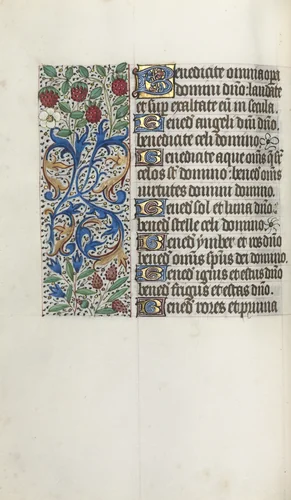 Benedicite omnia opa
domini dño: laudate
et sup exaltate eũ in secula.
Bened angeli dñi dño.
benedicite celi domino.
Benedicite aque oms q̃ sup
celos st̃ domino: bened oms
uirtutes domini domino.
Bened sol et luna dño.
bened stelle celi domino.
Bened ymber et ros dño
bened omis sp̃us dei domino.
Bened ignis et estus dño
bened frigus et estas dño.
Bened rores et pruina